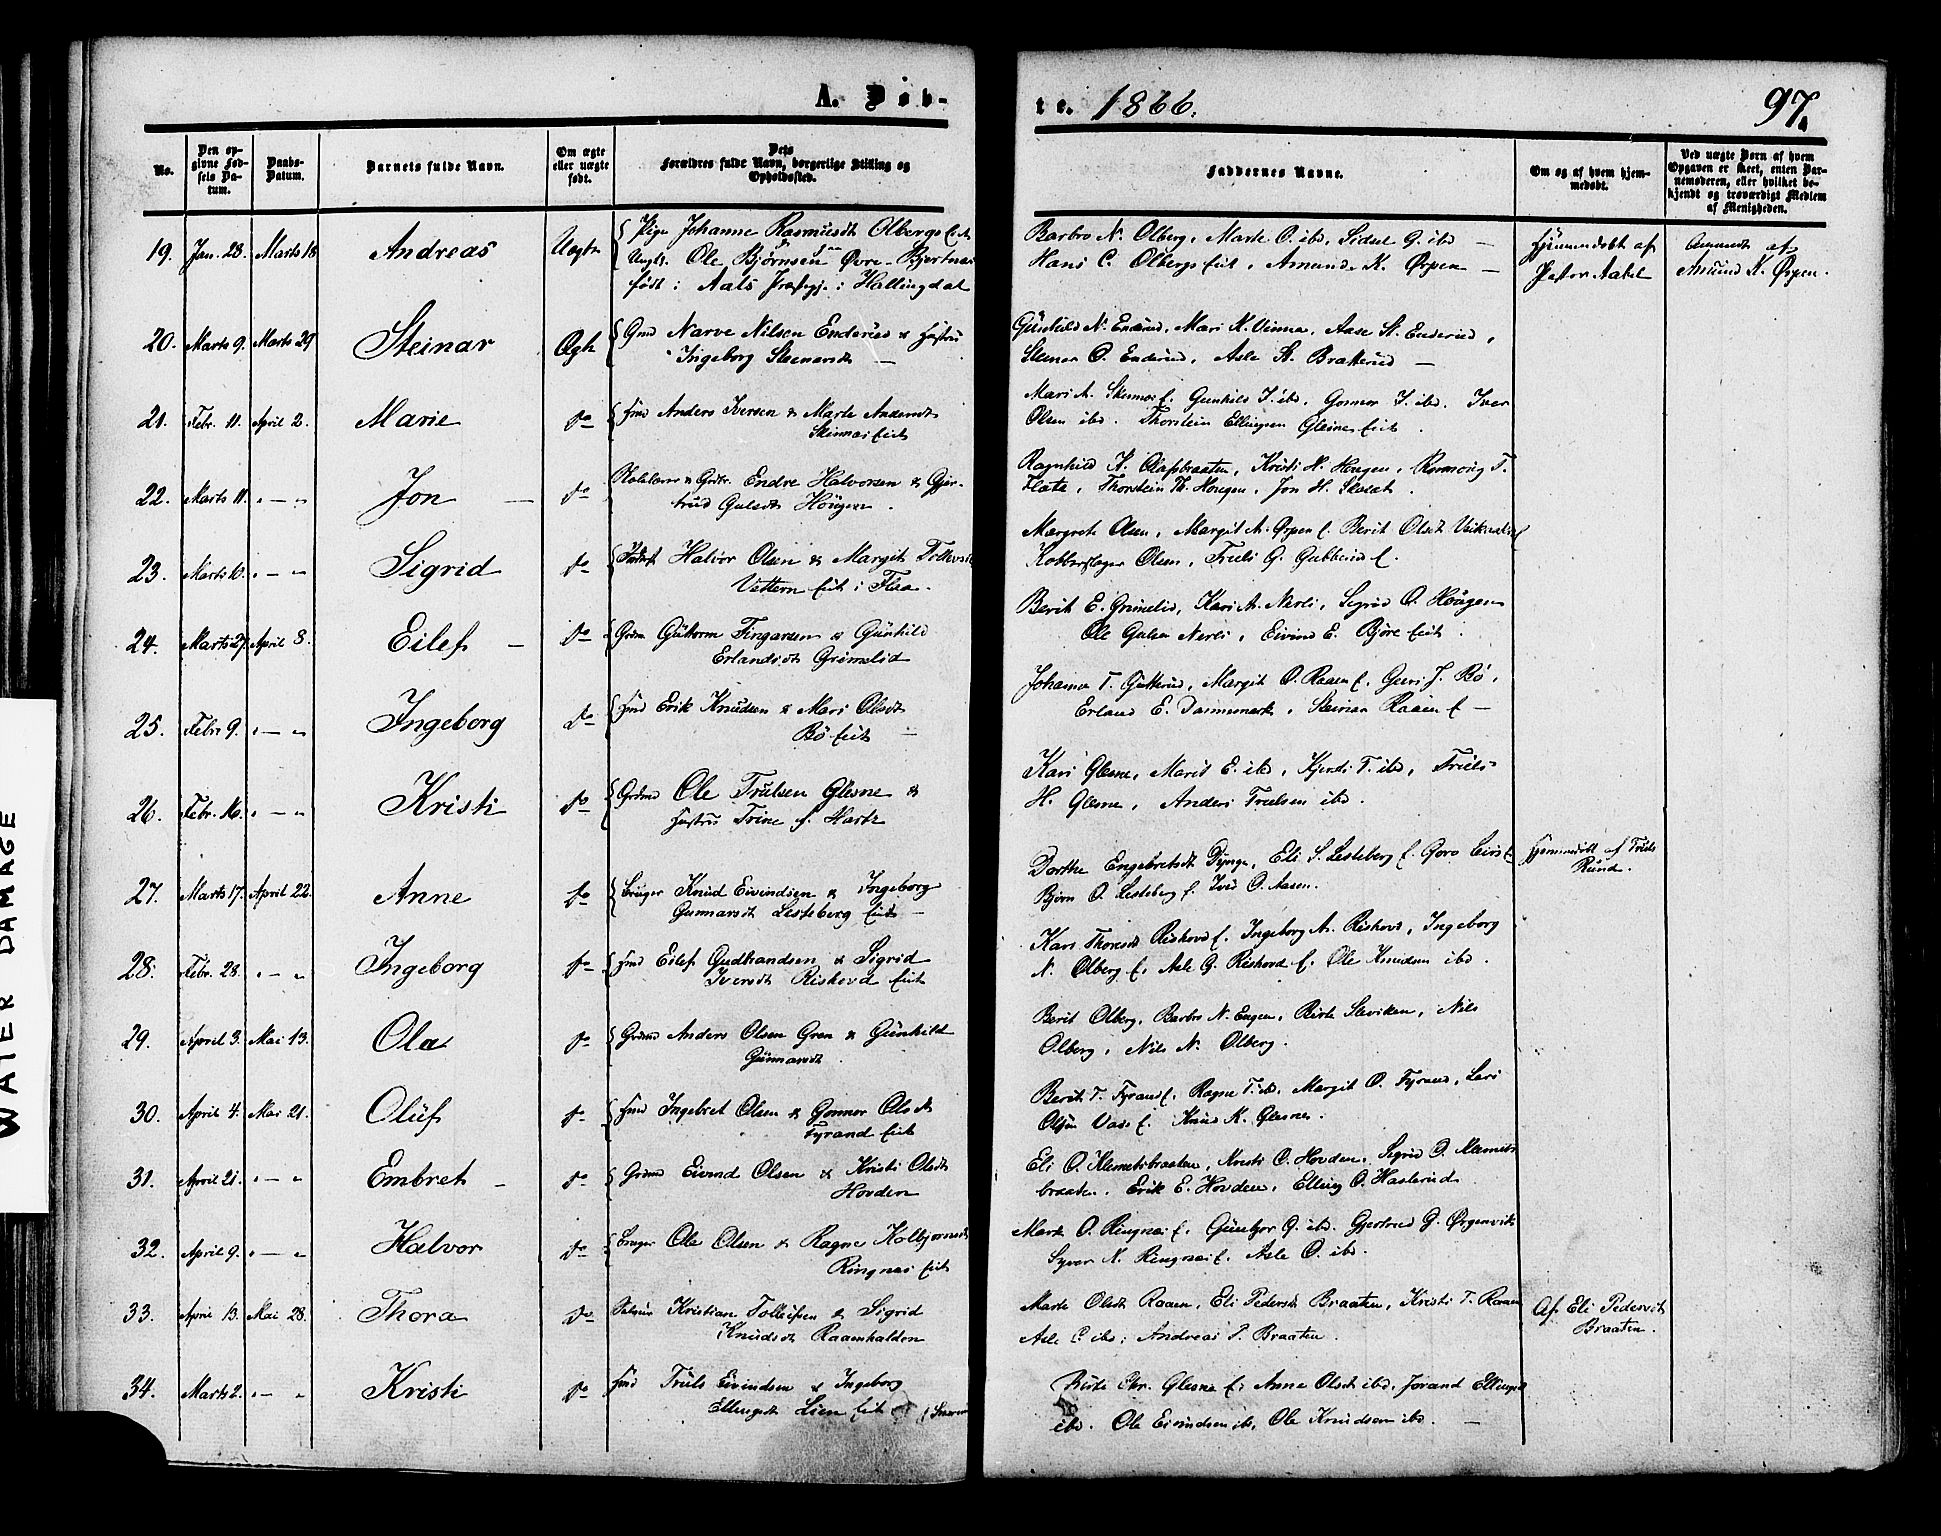 A. Døb-
te. 1866.
97.
No.
Den opgivne Fødsels Datum.
Daabs-Datum.
Barnets fulde Navn.
Om ægte eller uægte født.
Dets Forældres fulde Navn, borgerlige Stilling og Opholdssted.
Faddernes Navne.
Om og af hvem hjemmedøbt.
Ved uægte Børn af hvem Opgaven er skeet, enten Barnemoderen, eller hvilket bekjendt og troværdigt Medlem af Menigheden.
19. Jan. 28. Marts 18 Andreas Uægte Pige Johanne Rasmusdt Olbergs Eie
Ungk. Ole Bjørnsen Øvre-
født i Aals Præstegj. i Hallingdal
Barbro N. Olberg, Marte O. ibd, Sidsel G. ibd
Hans C. Olbergs Eie, Amund K. Ørpen
Hjemmedøbt af
Pastor Aabel
Anmeldt af
Amund K. Ørpen.
20. Marts 9. Marts 29 Steinar Ægte Gmd Narve Nilsen Enderud & Hustru
Ingeborg Steinarsdt
Gunhild N. Enderud, Mari K. Vinna, Aase St. Enderud,
Steinar O. Enderud, Asle St. Bratterud
21. Febr. 11. April 2. Marie do Hmd Anders Iversen & Marte Andersdt
Skinnes Eie
Mari A. Skinnes E. Gunhild I. ibd, Gonnor I. ibd. Iver
Olsen ibd. Thorstein Ellingsen Glesne Eie.
22. Marts 11. " - " Jon do Skolelærer & Grdbr. Endre Halvorsen & Gjer-
trud Gulsdt Høugen.
Ragnhild H. Olafsbraaten, Kristi H. Hougen, Rønnoug T.
Flata, Thorstein Th. Hougen, Jon H. Skalat.
23. Marts 10. " - " Sigrid do Halvor Olsen & Margit Tollevsdt
Vettern Eie i Flaa.
Margrete Olsen, Margit A. Ørpen E. Berit Olsdt
Kobberslager Olsen, Truls G. Gubberud E.
24. Marts 27. April 8. Eilef do Grdm Guttorm Fingarsen & Gunhild
Erlandsdt Grimelid
Berit E. Grimelid, Kari A. Nerli, Sigrid O. Høugen
Ole Gulsen Nerli, Eivind E. Bjøre Eie.
25. Febr 9. " - " Ingeborg do Hmd Erik Knudsen & Mari Olsdt
Bø Eie
Johanna T. Gutterud, Margit O. Raaen E. Guri J. Bø,
Erland E. Dannemark, Steinar Raaen E
26. Febr. 16. " - " Kristi do Grdmd Ole Trulsen Glesne &
Hustru Trine f. Harbz
Kari Glesne, Marit E. ibd, Kjersti T. ibd, Truls
H. Glesne, Anders Trulsen ibd.
27. Marts 17. April 22. Anne do Bruger Knud Eivindsen & Ingeborg
Gunnarsdt Lesteberg Eie
Dorthe Engebretsdt Dynge, Eli S. Lesteberg E. Goro Leirs E
Bjørn O. Lesteberg E. Iver O. Aasen.
Hjemmedøbt af Truls
Rund.
28. Febr. 28. " - " Ingeborg do Hmd Eilef Gudbrandsen & Sigrid
Iversdt Riskovd Eie
Kari Thoresdt Riskovd E. Ingeborg A. Riskovd, Ingeborg
N. Olberg E. Asle G. Riskovd E. Ole Knudsen ibd.
29. April 3. Mai 13. Ola do Grdmd Anders Olsen Gren & Gunhild
Gunnarsdt.
Berit Olberg, Barbro N. Engen, Birte Sleviken, Nils
Olberg, Nils N. Olberg.
30. April 4. Mai 21. Oluf do Hmd Ingebret Olsen & Gonnor Olsdt
Fyrand Eie
Berit T. Fyrand E. Ragne T. ibd, Margit O. Fyrand, Lars
Olsen Vass E. Knud K. Glesne.
31. April 21. " - " Embret do Grdmd Eivind Olsen & Kristi Olsdt
Hovden
Eli O. Klemetsbraaten, Kristi O. Hovden, Sigrid O. Klemets-
braaten. Erik E. Hovden, Elling O. Haslerud.
32. April 9. " - " Halvor do Bruger Ole Olsen & Ragne Kolbjørnsdt
Ringnes Eie
Marte O. Ringnes E. Guntjor G. ibd. Gjertrud G. Ørgenvik
Syver N. Ringnes E. Asle O. ibd.
33. April 13. Mai 28. Thora do Kristian Tollefsen & Sigrid
Knudsdt Raaenhalden
Marte Olsdt Raaen, Eli Pedersdt Braaten, Kristi T. Raaen
Asle C. ibd, Andreas P. Braaten.
Af Eli Pedersdt
Braaten.
34. Marts 2. " - " Kristi do Hmd Truls Eivindsen & Ingeborg
Ellingsdt Lien Eie
Birte Chr. Glesne E. Anne Olsdt ibd, Jorand Ellingsdt
ibd. Ole Eivindsen ibd, Ole Knudsen ibd.
WATER DAMAGE